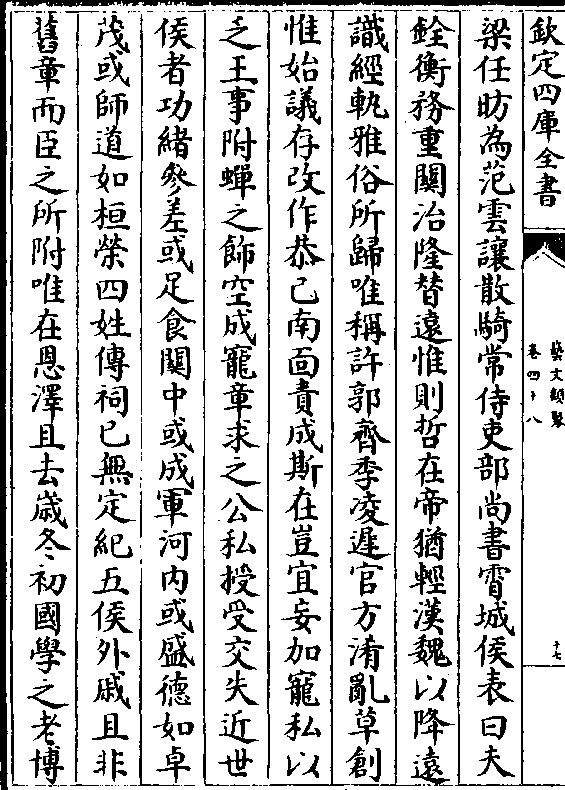 欽定四庫全書
藝文類聚
卷四十八
十七
梁任昉為范雲讓散騎常侍吏部尚書霄城侯表曰夫
銓衡務重關治隆替遠惟則哲在帝猶輕漢魏以降遠
識經軌雅俗所歸唯稱許郭齊季凌遲官方淆亂草創
惟始議存改作恭己南面責成斯在豈宜妄加寵私以
乏王事附蟬之飾空成寵章求之公私授受交失近世
侯者功緒參差或足食關中或成軍河內或盛德如卓
茂或師道如桓榮四姓傳祠已無定紀五侯外戚且非
舊章而臣之所附唯在恩澤且去歲冬初國學之老博